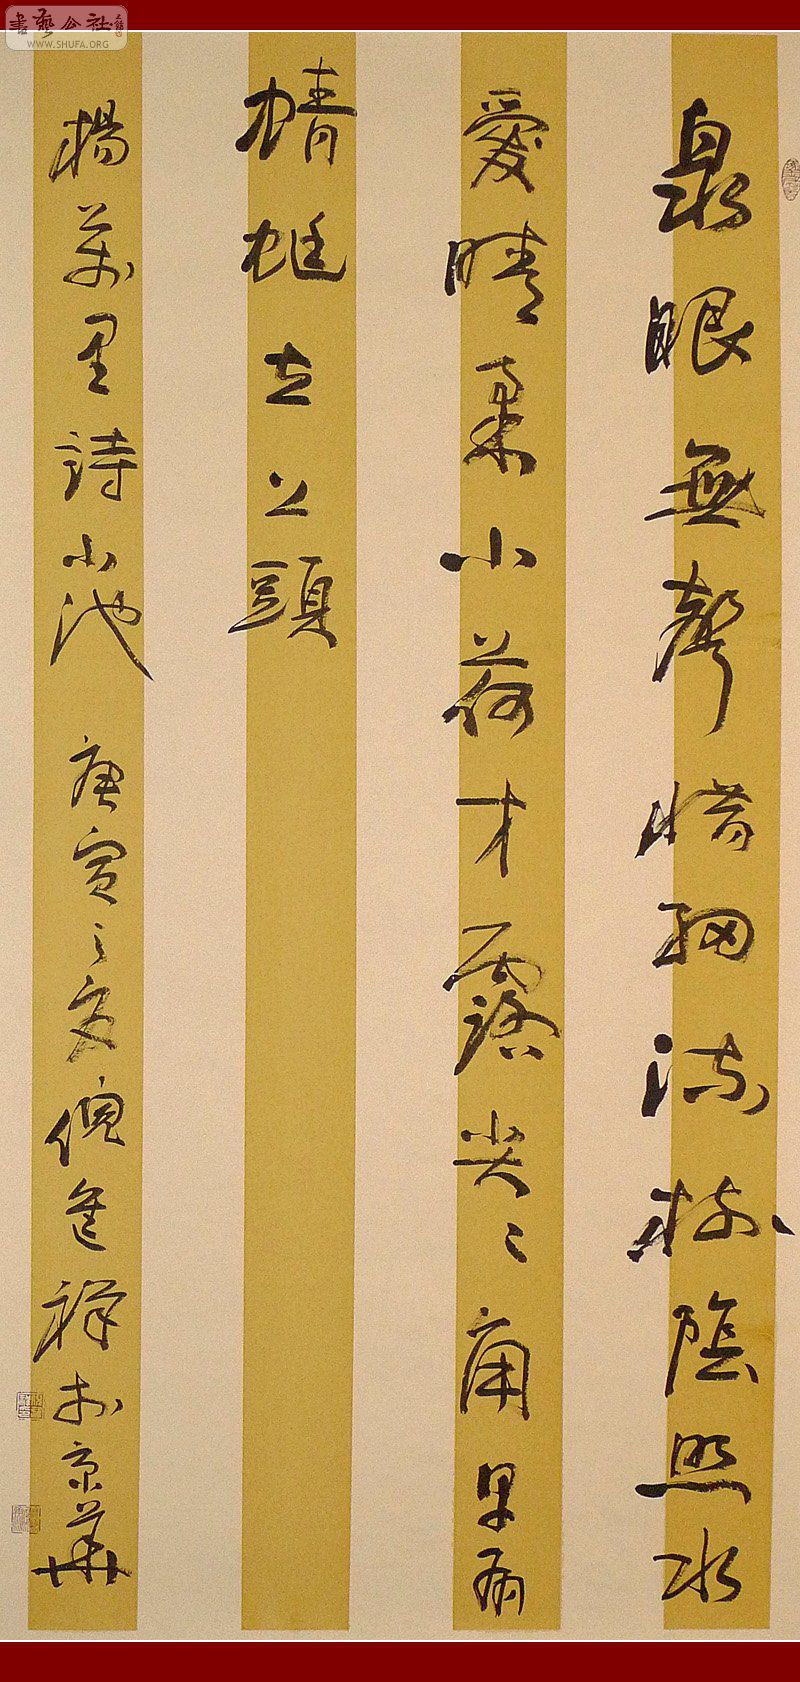 書藝公社
WWW.SHUFA.ORG
泉眼無聲惜細流樹陰照水
愛晴柔小荷才露尖々角早有
蜻蜓立上頭
楊萬里詩小池 庚寅之夏倪進祥於京華